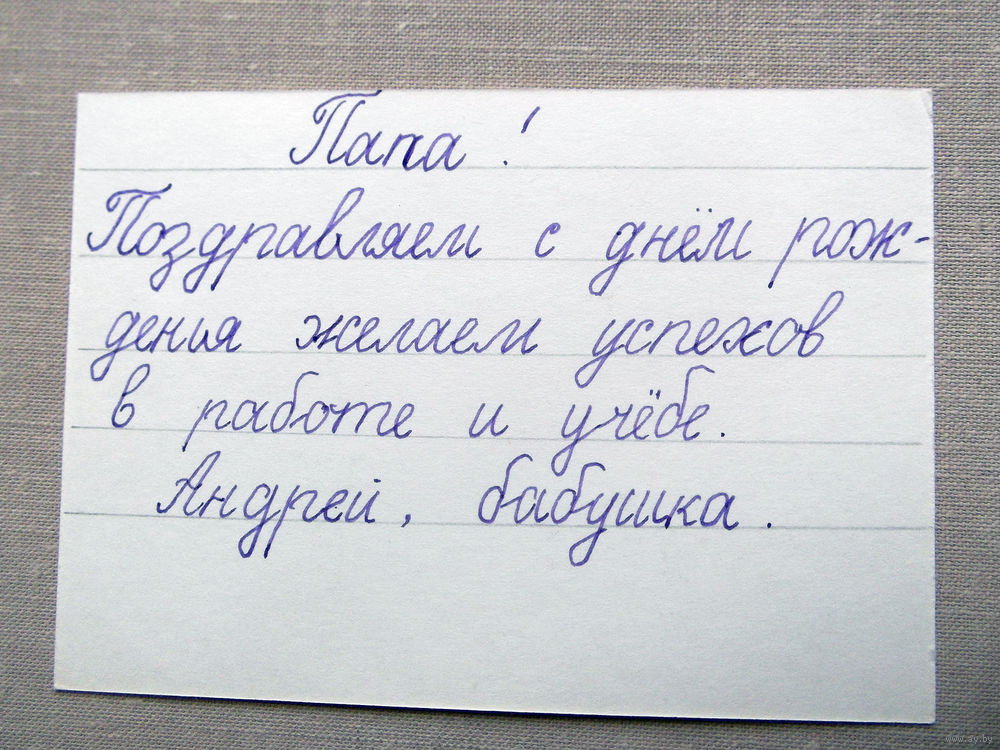 Папа!
Поздравляем с днём рож-
дения желаем успехов
в работе и учёбе.
Андрей, бабушка.
www.ay.by